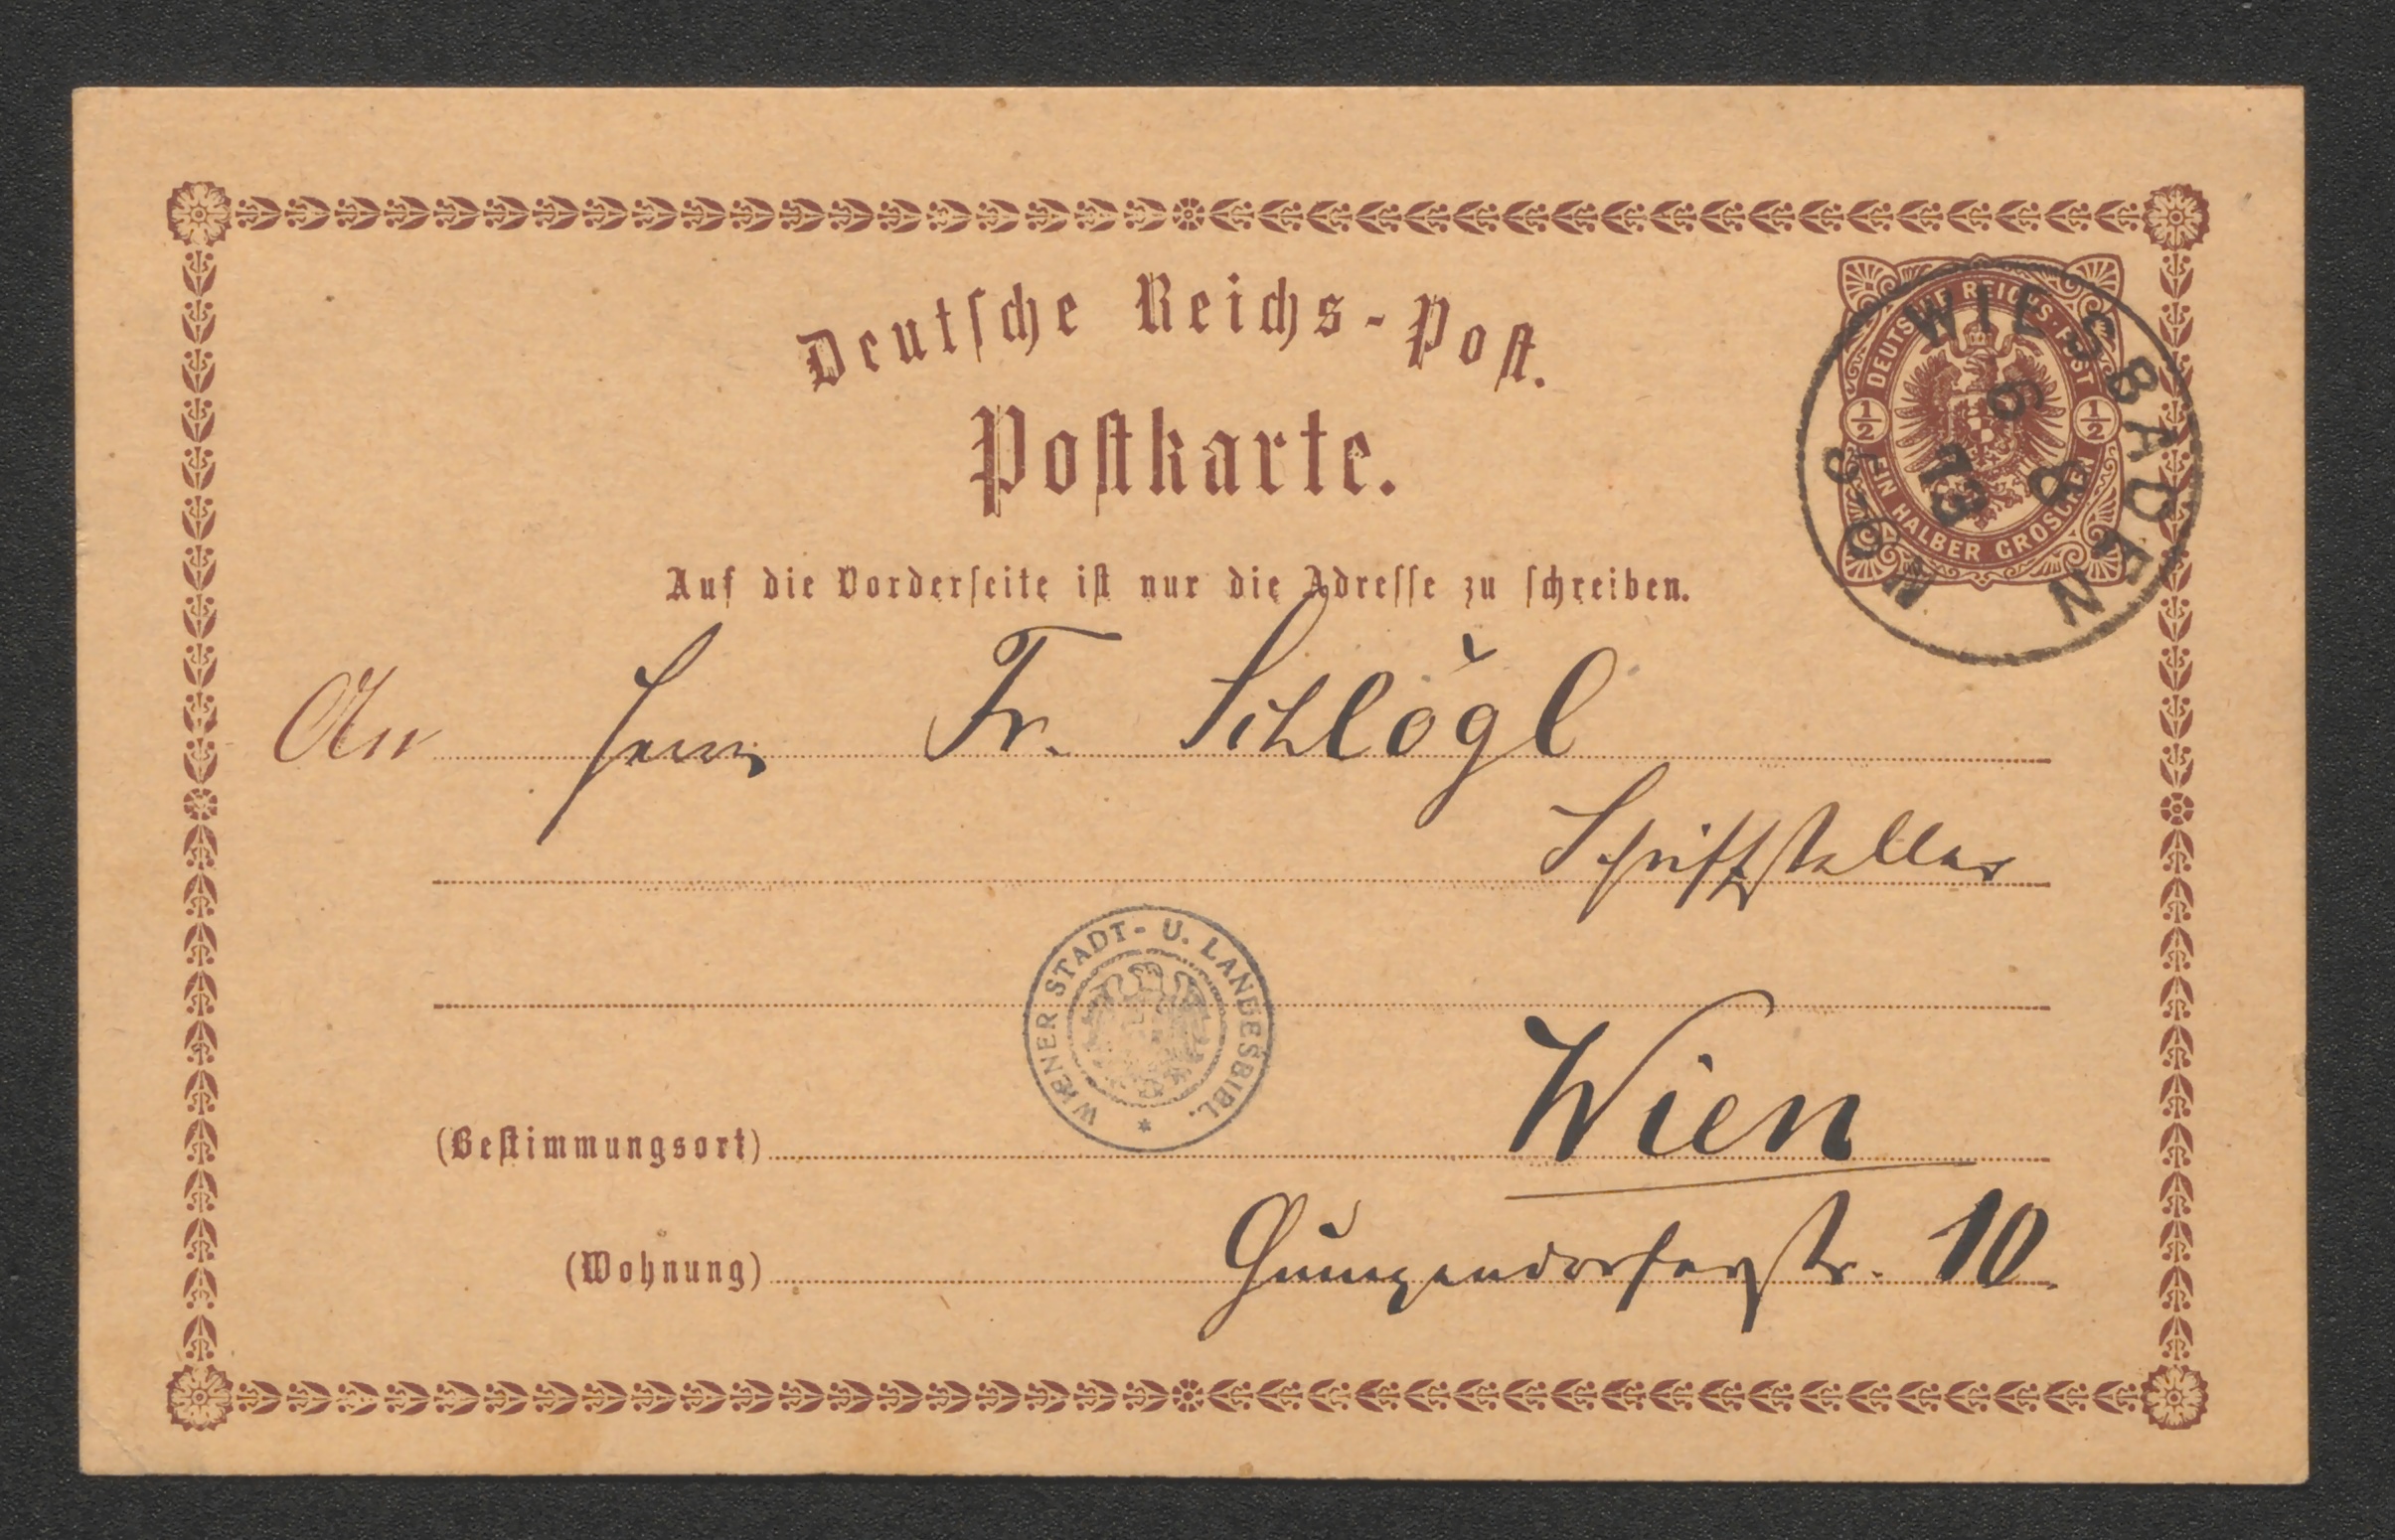 Deutsche Reichs-Post.
Postkarte.
DEUTSCHE REICHS-POST
1/2 1/2
EIN HALBER GROSCHEN
WIESBADEN
6 8
73
Auf die Vorderseite ist nur die Adresse zu schreiben.
An Herrn Fr. Schlögl
Schriftsteller
WIENER STADT- U. LANDESBIBL.
(Bestimmungsort) Wien
(Wohnung) Gumpendorferstr. 10.